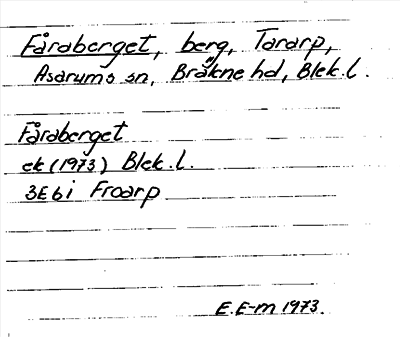 Fåraberget, berg, Tararp,
Asarums sn, Bräkne hd, Blek. l.
Fåraberget
ek (1973) Blek. l.
3E6i Froarp
E. E-m 1973.